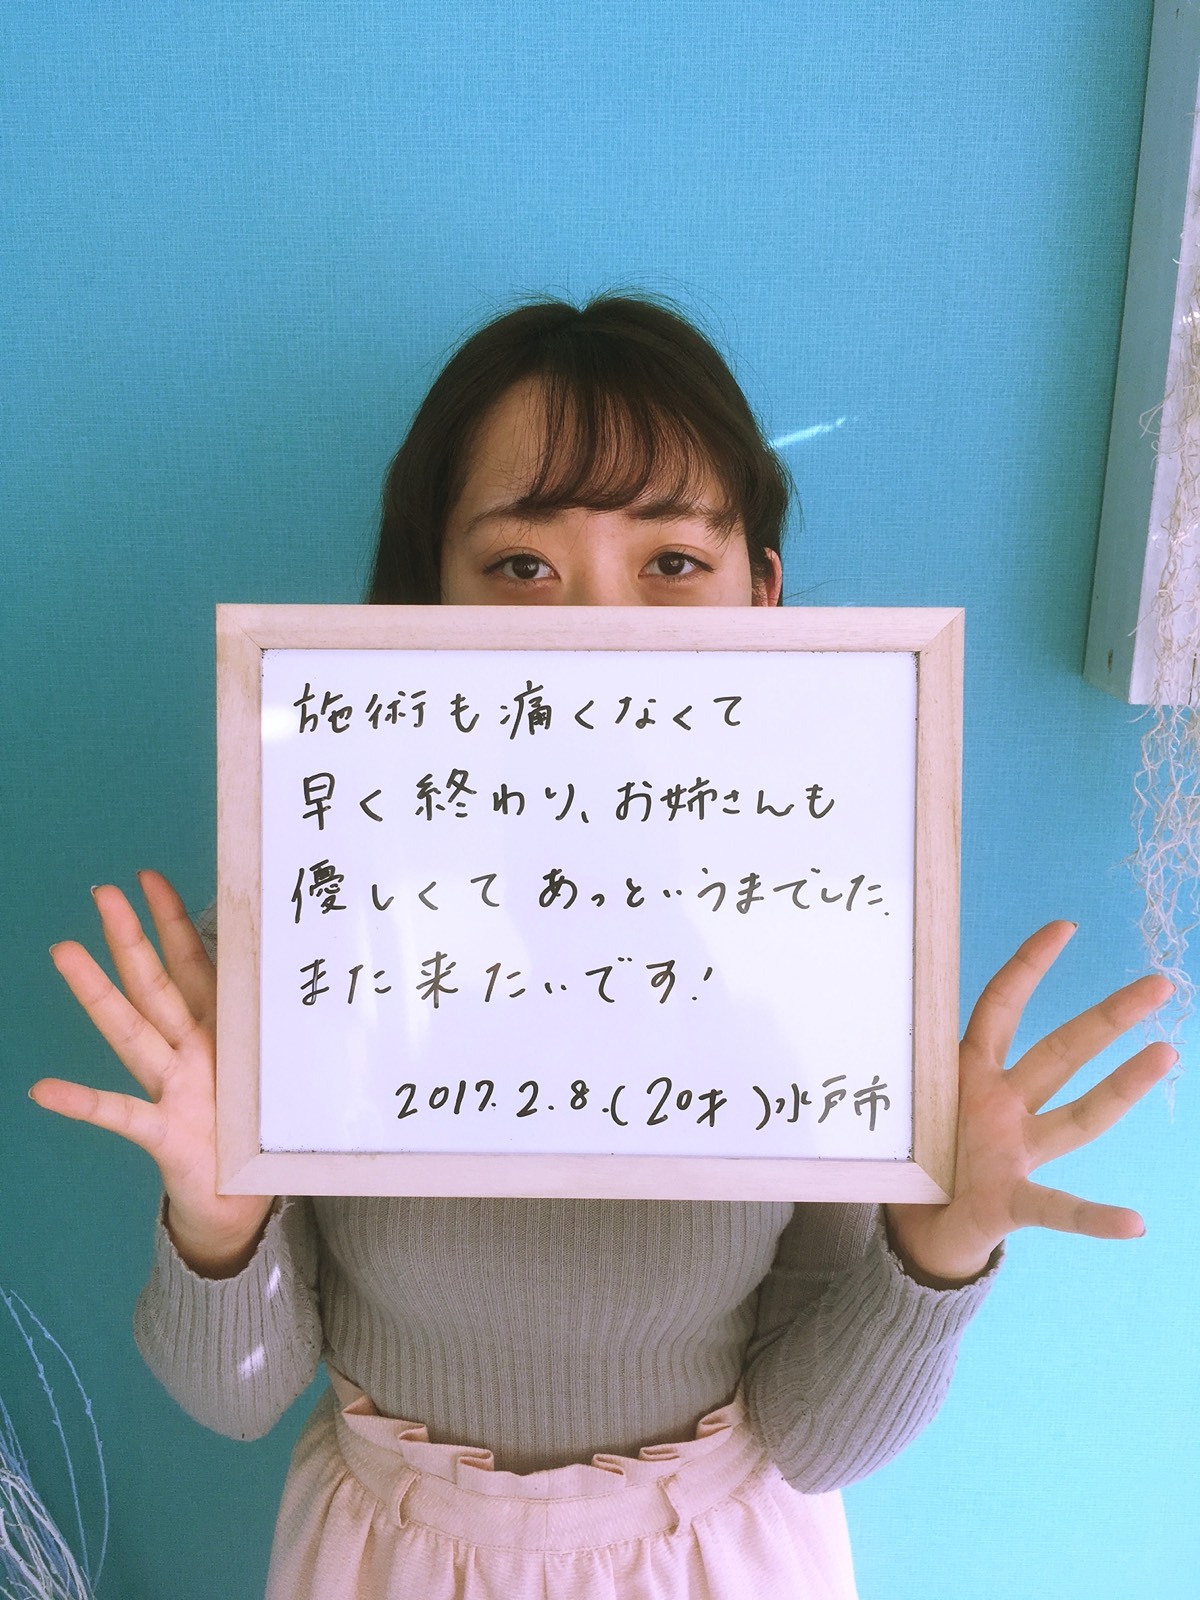 施術も痛くなくて
早く終わり、お姉さんも
優しくてあっというまでした.
また来たいです!
2017.2.8.(20才)水戸市